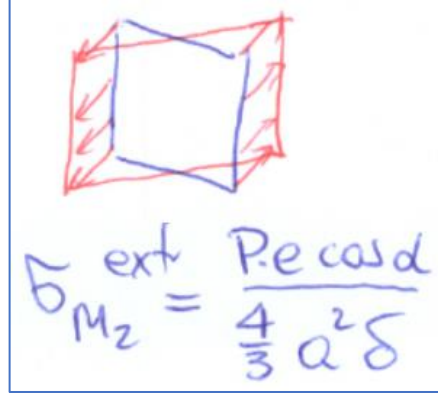 σ_{M_2}^{ext} = \frac{P.e cos α}{\frac{4}{3} a^2 δ}